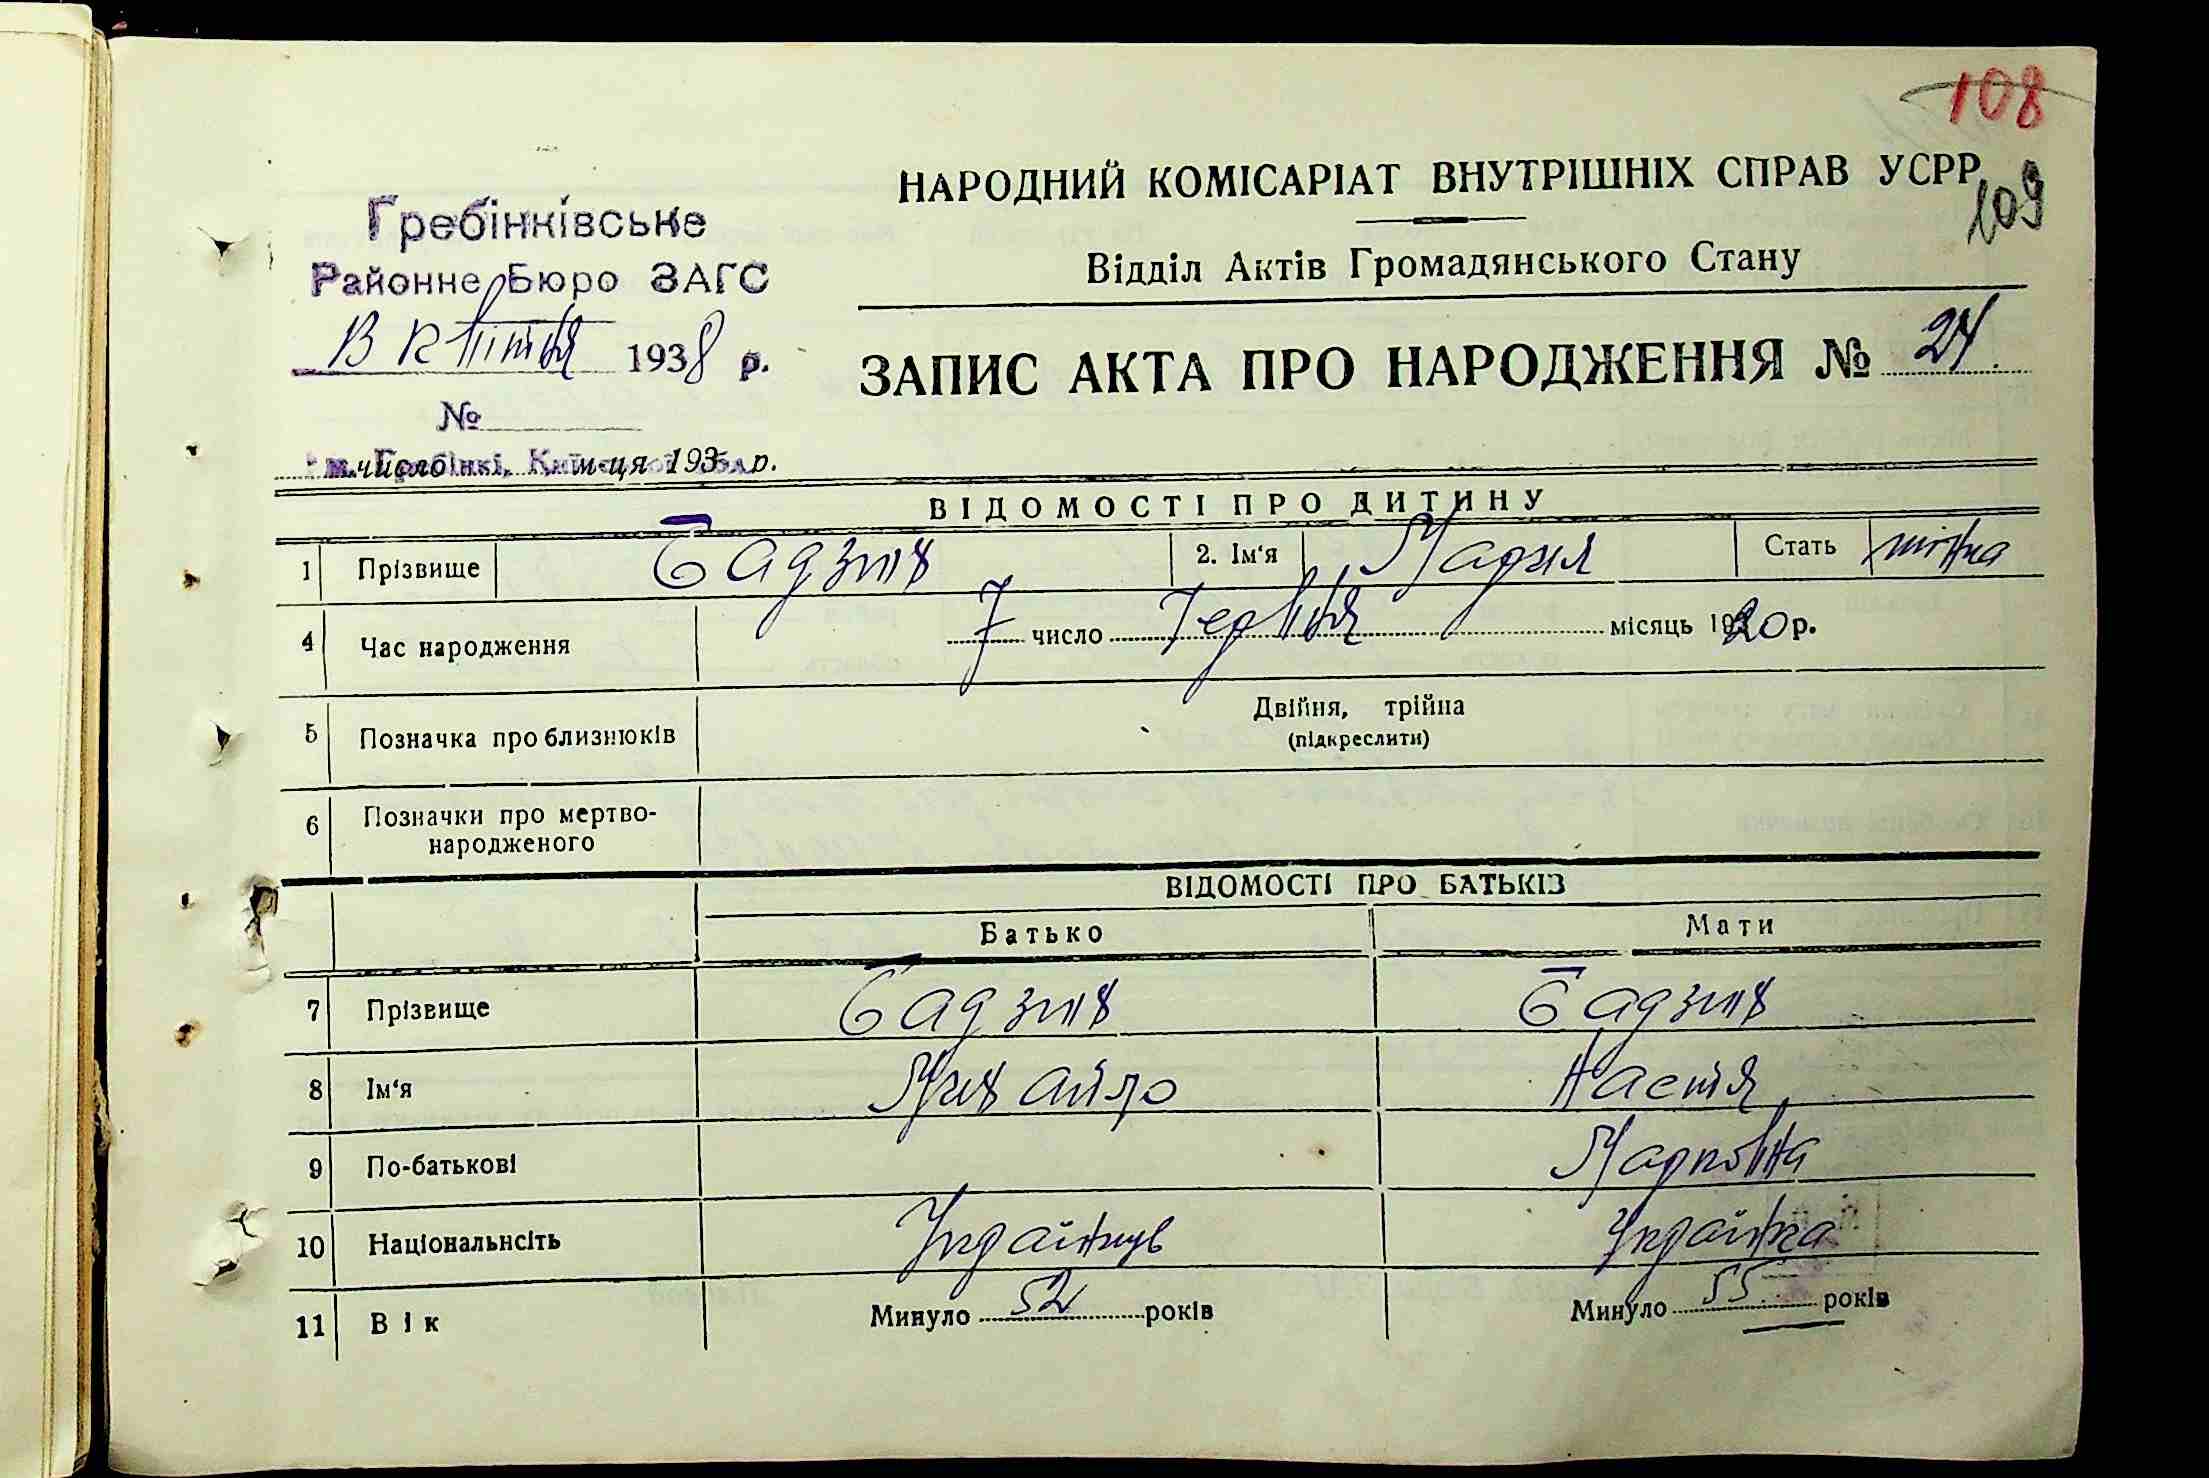 108
109
НАРОДНИЙ КОМІСАРІАТ ВНУТРІШНІХ СПРАВ УСРР
Відділ Актів Громадянського Стану
Гребінківське
Районне Бюро ЗАГС
13 квітня 1938 р.
№
м. Гребінкі, Київської обл.
число м-ця 193 р.
ЗАПИС АКТА ПРО НАРОДЖЕННЯ № 24
ВІДОМОСТІ ПРО ДИТИНУ
1 Прізвище Бадзюх 2. Ім'я Марія Стать жіноча
4 Час народження 7 число Червня місяць 1920 р.
5 Позначка про близнюків Двійня, трійна
(підкреслити)
6 Позначки про мертво-
народженого
ВІДОМОСТІ ПРО БАТЬКІВ
Батько Мати
7 Прізвище Бадзюх Бадзюх
8 Ім'я Михайло Настя
9 По-батькові Марковна
10 Національнсіть Українець Українка
11 Вік Минуло 52 років Минуло 55 років